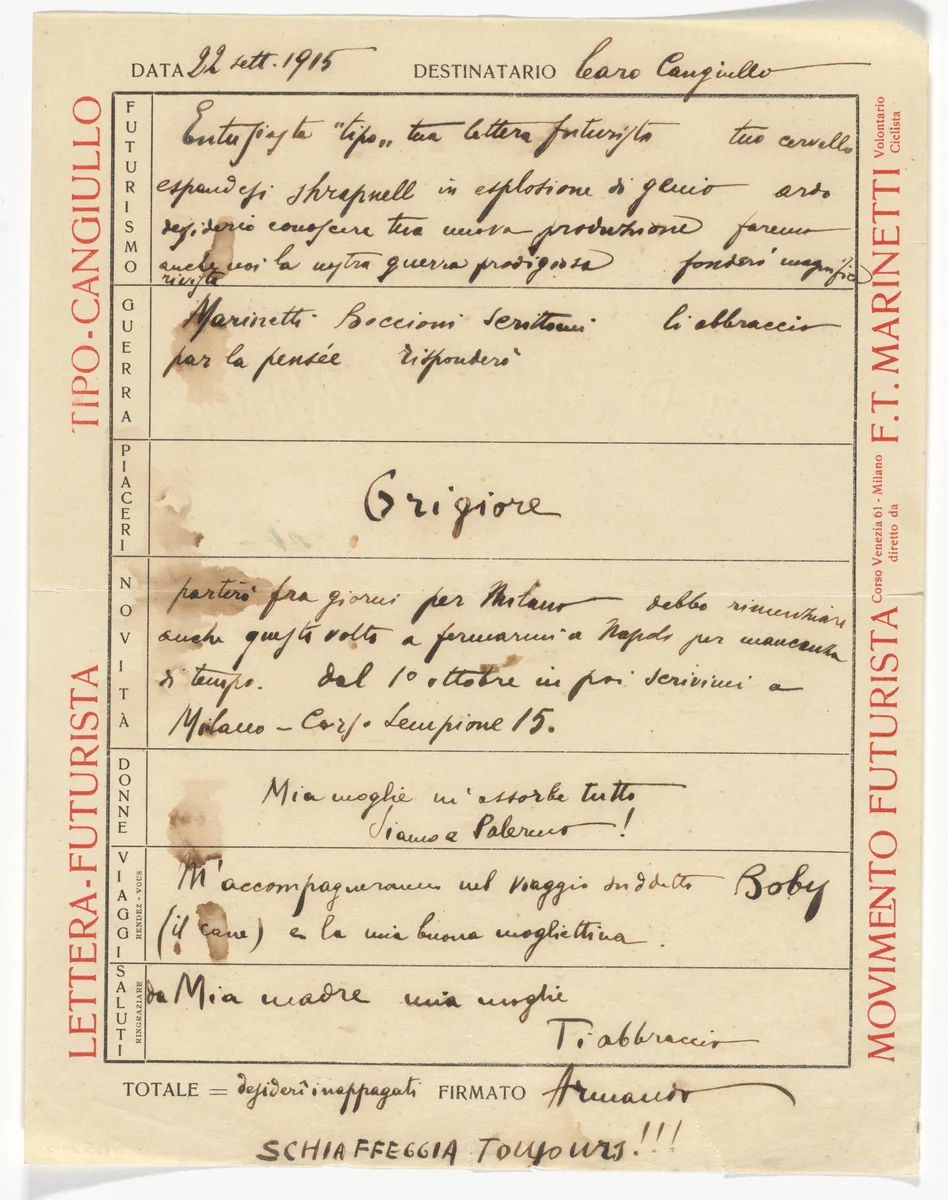 DATA 22 sett. 1915 DESTINATARIO Caro Cangiullo
FUTURISMO
Entusiasta "tipo„ tua lettera futurista tuo cervello
espandesi shrapnell in esplosione di genio ardo
desiderio conoscere tua nuova produzione faremo
anche noi la nostra guerra prodigiosa fonderò magnifica
rivista
GUERRA
Marinetti Boccioni scrittomi li abbraccio
par la pensée risponderò
PIACERI
Grigiore
NOVITÀ
partirò fra giorni per Milano debbo rinunziare
anche questa volta a fermarmi a Napoli per mancanza
di tempo. dal 1° ottobre in poi scrivimi a
Milano – Corso Sempione 15.
DONNE
Mia moglie m'assorbe tutto
Siamo a Palermo !
VIAGGI
RENDEZ-VOUS
M'accompagneranno nel viaggio suddetto Boby
(il cane) e la mia buona mogliettina.
SALUTI
RINGRAZIARE
da Mia madre mia moglie
Ti abbraccio
TOTALE = desideri inappagati FIRMATO Armando
SCHIAFFEGGIA TOUJOURS!!!
LETTERA-FUTURISTA TIPO-CANGIULLO
MOVIMENTO FUTURISTA diretto da F.T. MARINETTI Volontario Ciclista
Corso Venezia 61 - Milano